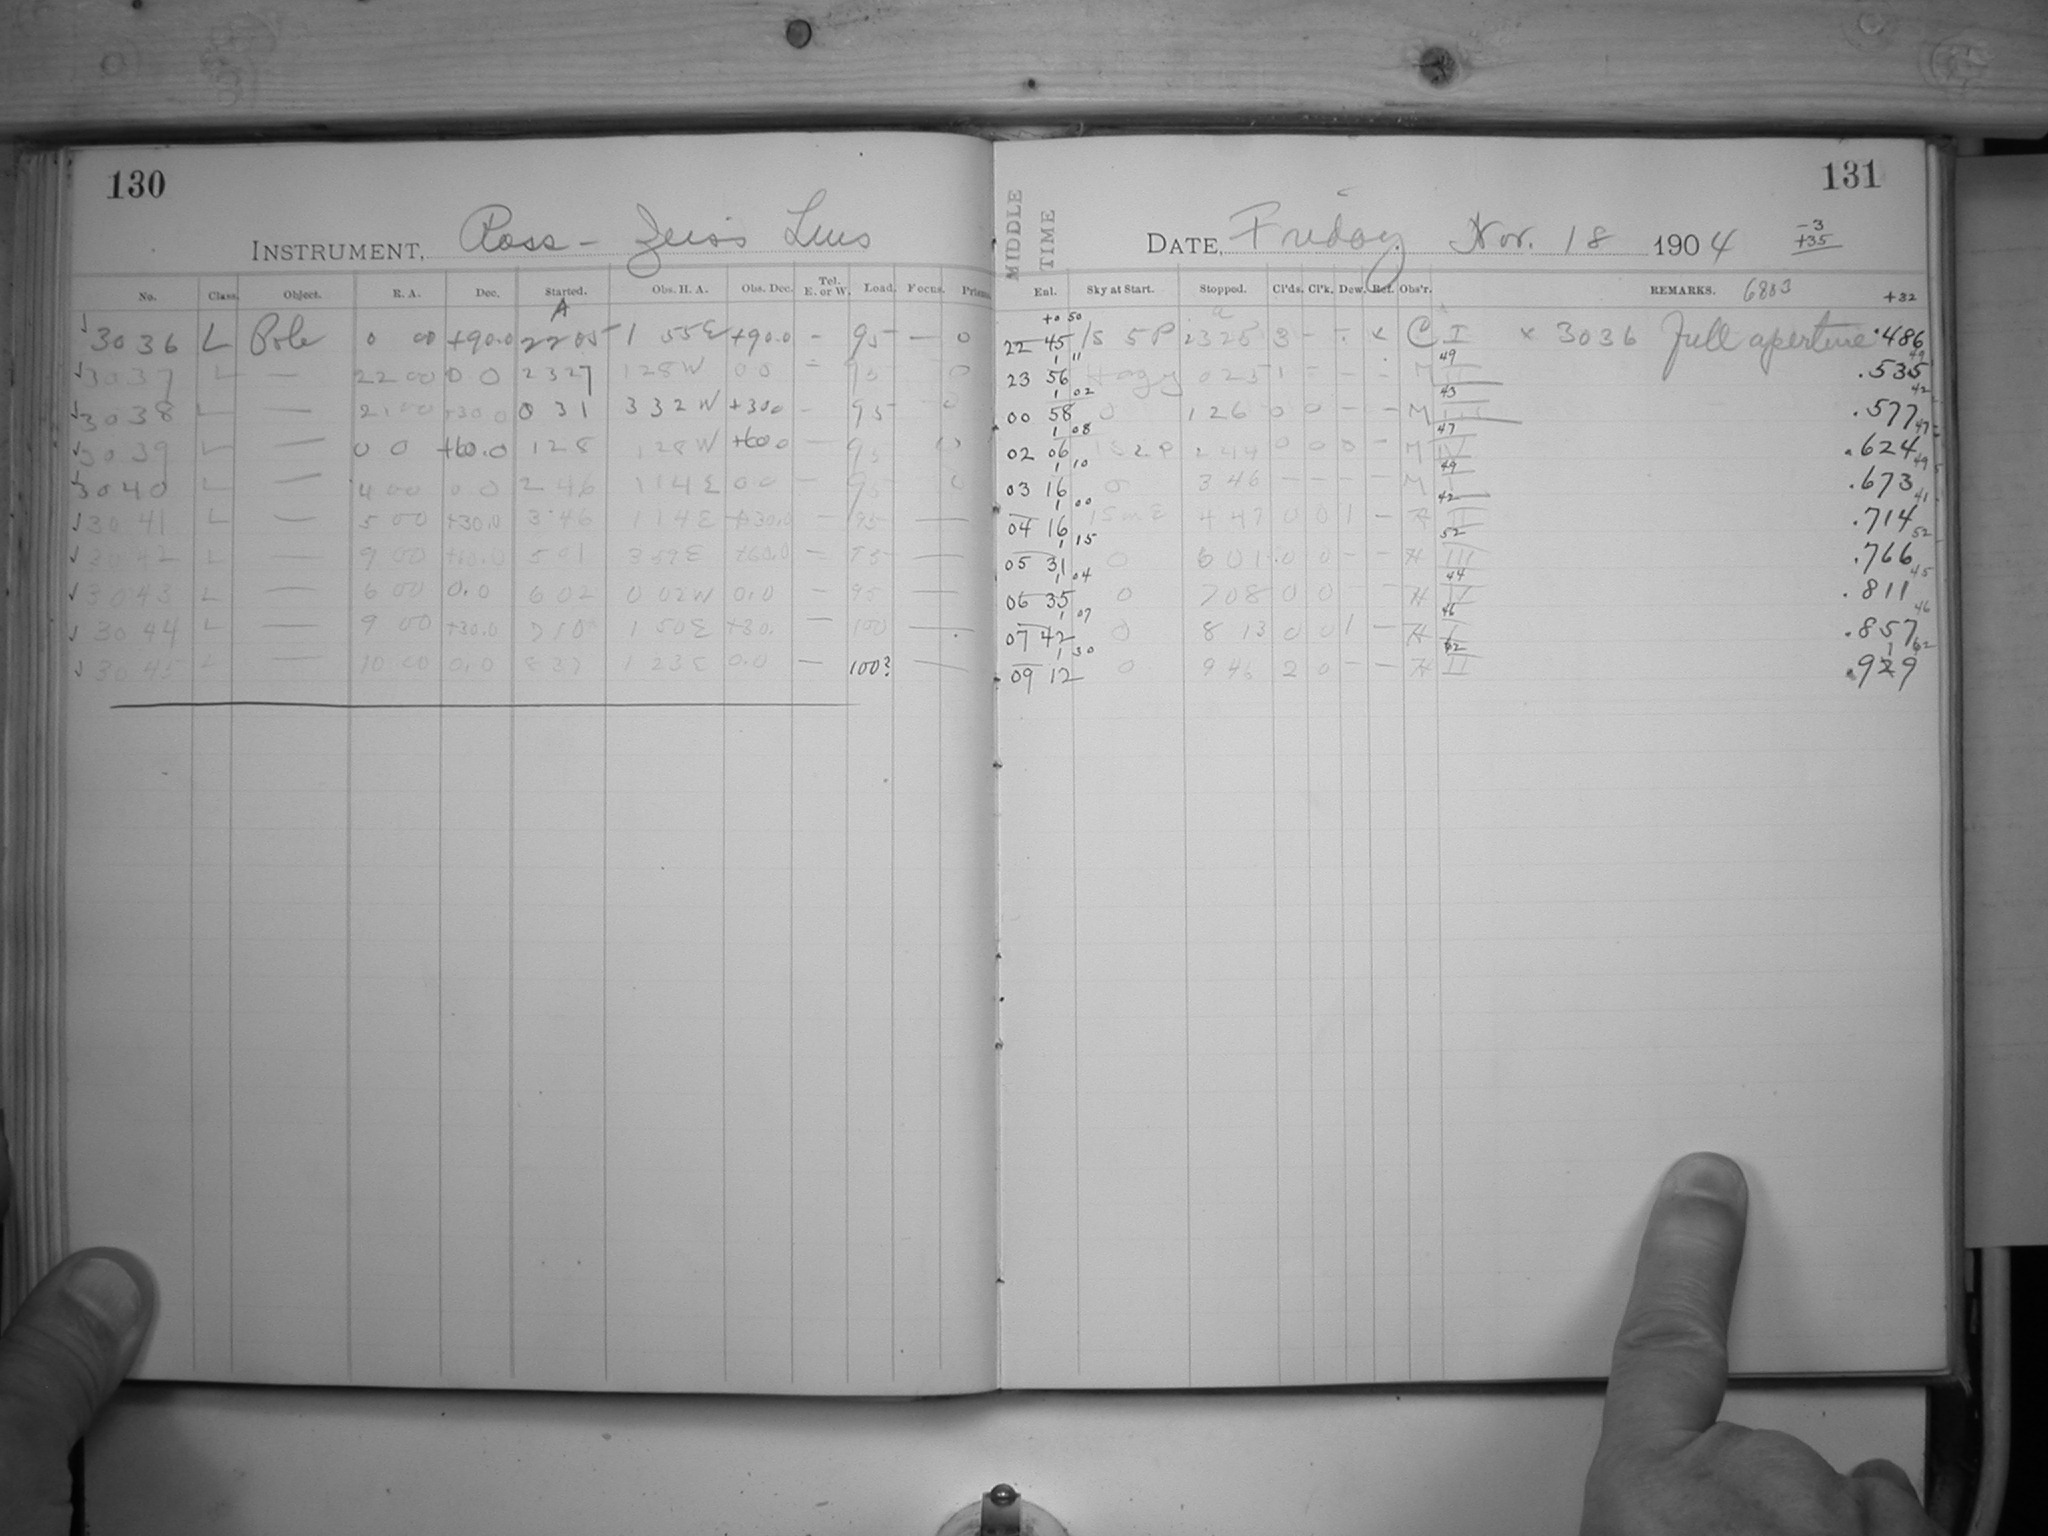 130
INSTRUMENT, Ross - Zeiss Lens
No. Class. Object. R. A. Dec. Started. Obs. H. A. Obs. Dec. Tel. E. or W. Load. Focus. Prism.
A
3036 L Pole 0 00 +90.0 2205 1 55E +90.0 - 95 - 0
3037 L — 22 00 0 0 2327 1 28W 0 0 - 95 0
3038 L — 21 00 +30.0 0 31 3 32W +30.0 - 95 0
3039 L — 0 0 +60.0 1 28 1 28W +60.0 — 95
3040 L — 4 00 0 0 2 46 1 14E 0 0 — 95 0
3041 L — 5 00 +30.0 3 46 1 14E +30.0 — 95 —
3042 L — 9 00 +60.0 5 01 3 59E +60.0 — 95 —
3043 L — 6 00 0.0 6 02 0 02W 0.0 — 95 —
3044 L — 9 00 +30.0 7 10 1 50E +30. — 100 —
3045 L — 10 00 0.0 8 37 1 23E 0.0 — 100? —
131
MIDDLE TIME
DATE, Friday Nov. 18 1904
-3
+35
Enl. Sky at Start. Stopped. Cl'ds. Cl'k. Dew. Ref. Obs'r. REMARKS. 6803 +32
+0 50
22 45 15 5P 2325 3 - - x C I x 3036 Full aperture .486
1 11 49 49
23 56 Hazy 0 25 1 - - - M II .535
1 02 43 42
00 58 0 1 26 0 0 - - M III .577
1 08 47 47
02 06 2P 2 44 0 0 0 - M IV .624
1 10 49 49
03 16 0 3 46 - - - - M .673
1 00 42 41
04 16 15mE 4 47 0 0 1 - H II .714
1 15 52 52
05 31 0 6 01 0 0 - - H III .766
1 04 44 45
06 35 0 7 08 0 0 - - H IV .811
1 07 46 46
07 42 0 8 13 0 0 1 - H I .857
1 30 62 62
09 12 0 9 46 2 0 - - H II .929